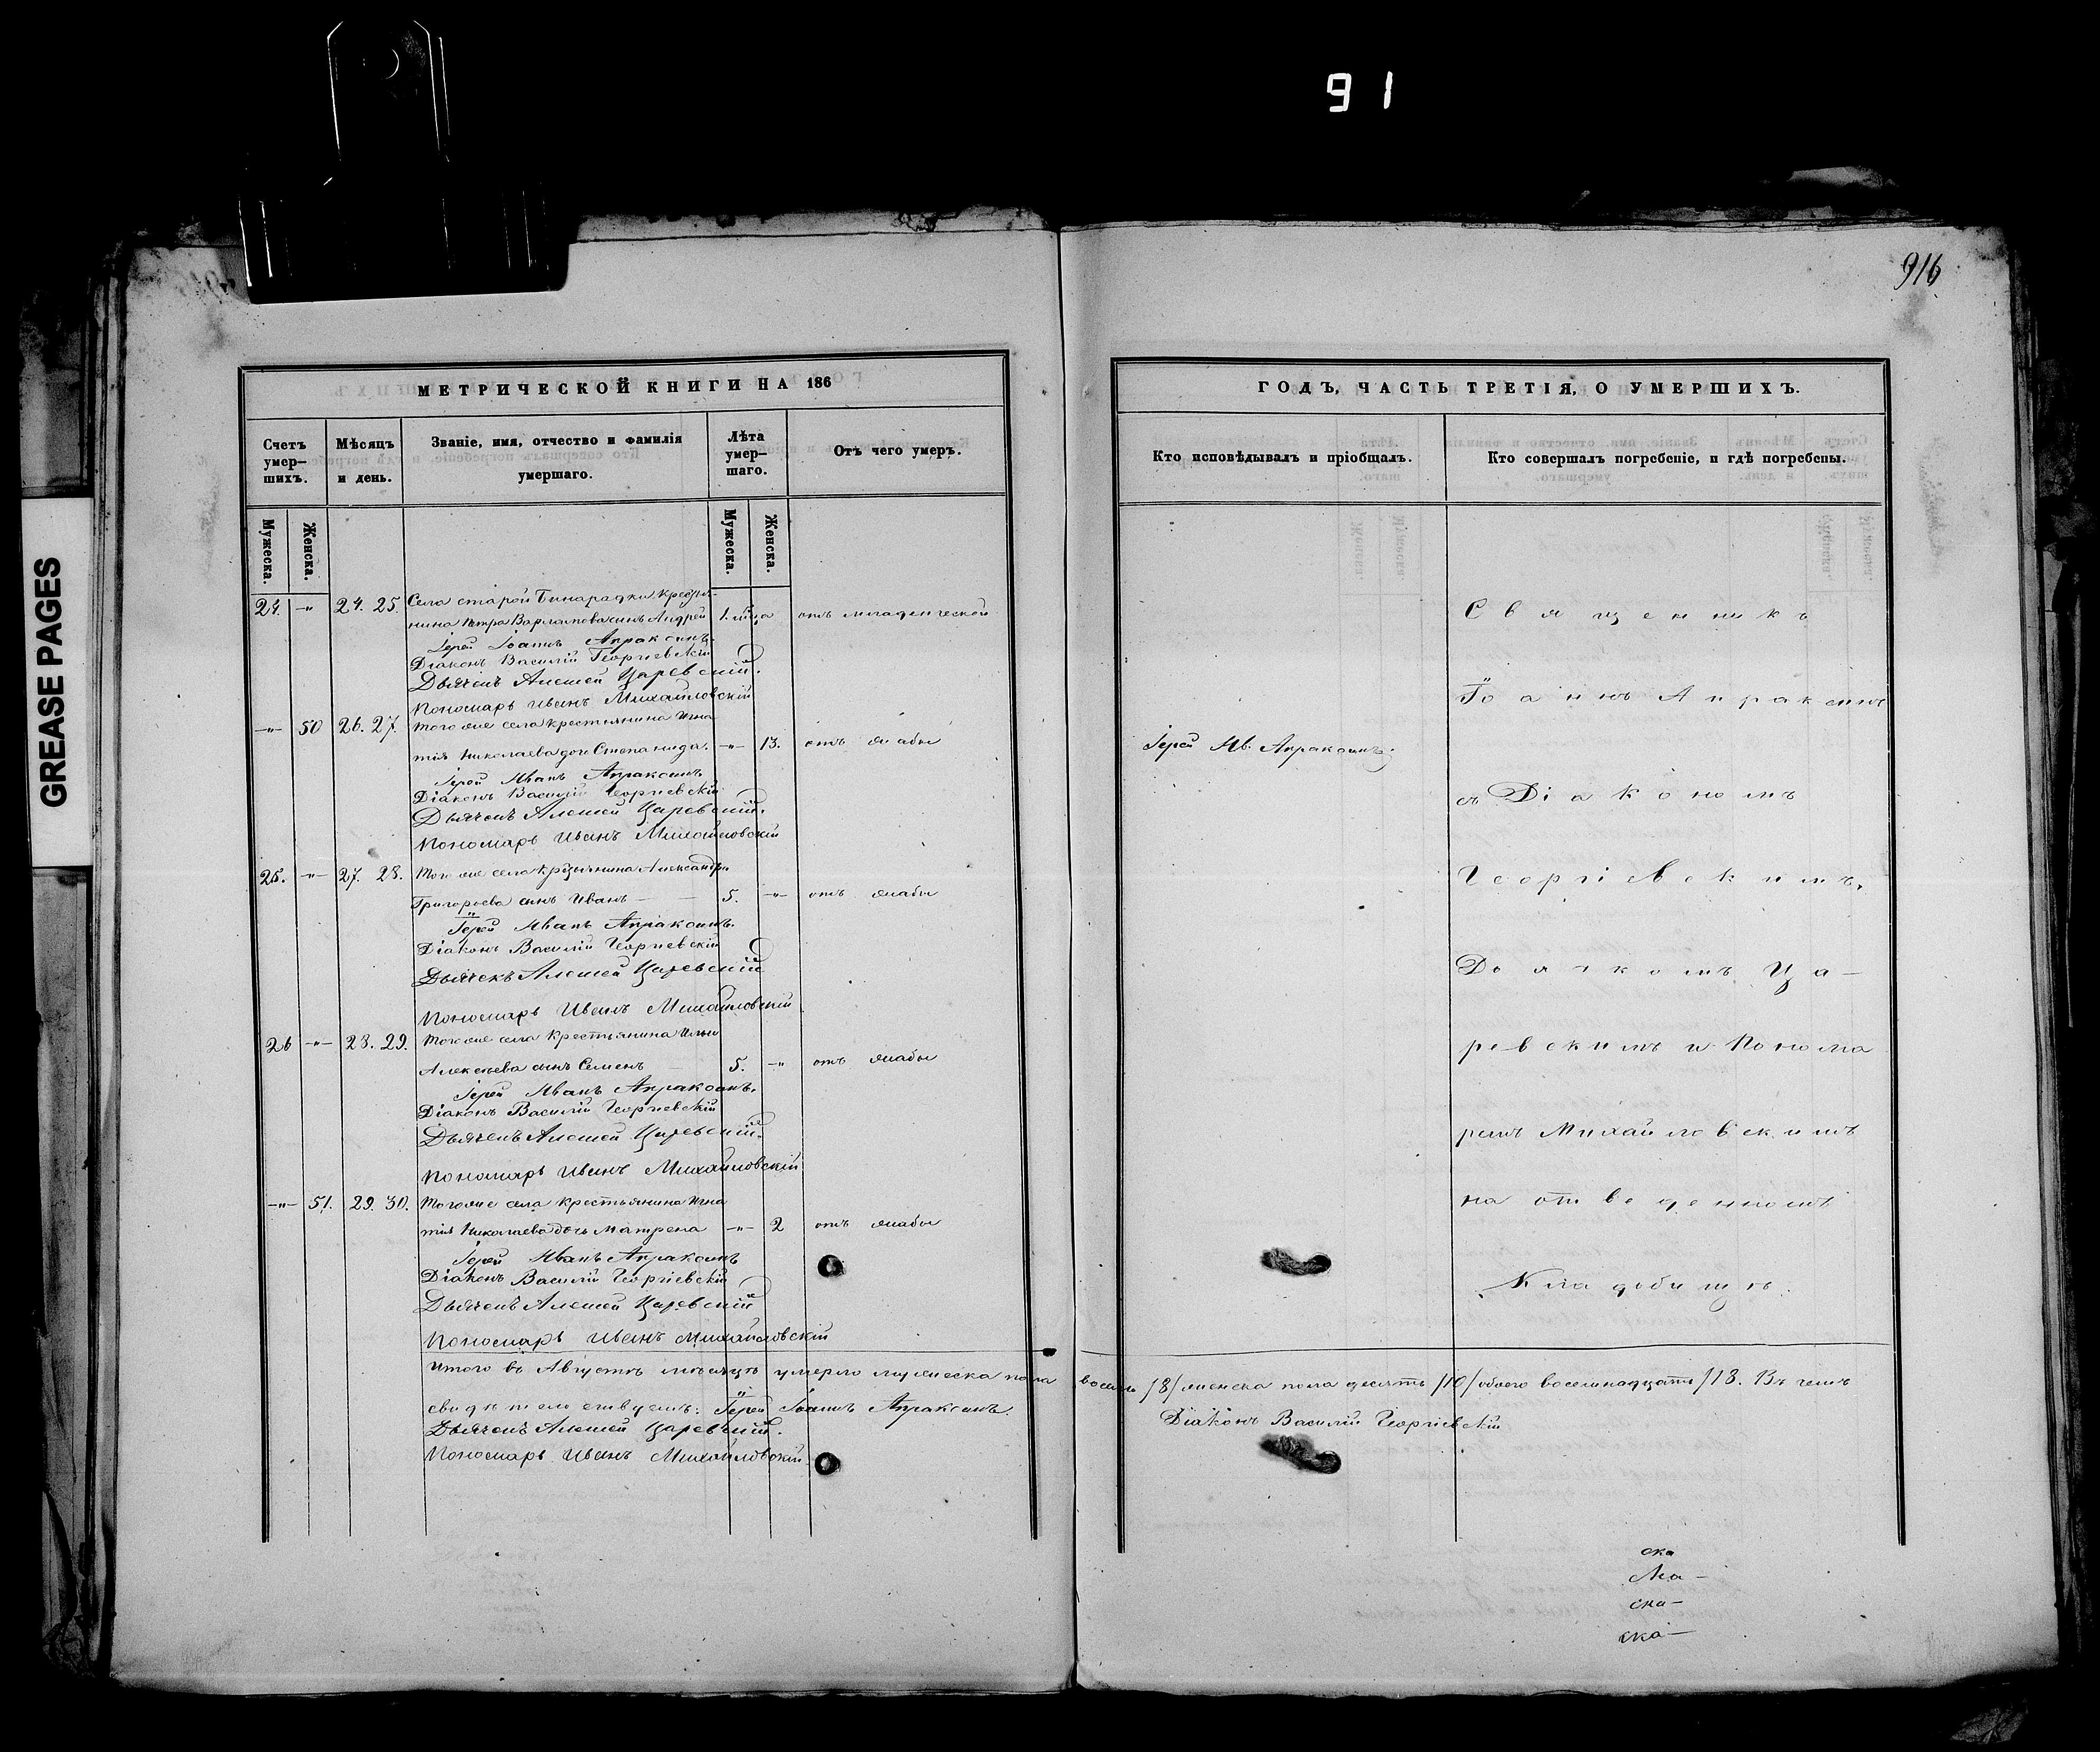 91
GREASE PAGES
916
МЕТРИЧЕСКОЙ КНИГИ НА 186
Счетъ умер-
шихъ.
Мѣсяцъ
и день.
Званіе, имя, отчество и фамилія
умершаго.
Лѣта
умер-
шаго.
Отъ чего умеръ.
Мужеска.
Женска.
Мужеска.
Женска.
24. -„- 24. 25. Села старой Бинарадки
нина Петра Варламова сынъ Андрей 1. отъ младенческой
Іерей Іоаннъ Апраксинъ.
Діаконъ Василій Георгіевскій
Дьячекъ Алексей Царевскій.
Пономарь Иванъ Михайловскій
-„- 50 26. 27. Того же села крестьянина Игна
тія Николаева дочь Степанида. -„- 13. отъ жабы
Іерей Иванъ Апраксинъ
Діаконъ Василій Георгіевскій
Дьячекъ Алексей Царевскій.
Пономарь Иванъ Михайловскій
25. -„- 27. 28. Того же села Александра
Григорьева сынъ Иванъ — 5. -„- отъ жабы
Іерей Иванъ Апраксинъ.
Діаконъ Василій Георгіевскій
Дьячекъ Алексей Царевскій
Пономарь Иванъ Михайловскій
26 -„- 28. 29. Того же села Крестьянина Ильи
Алексеева сынъ Семенъ — 5. -„- отъ жабы
Іерей Иванъ Апраксинъ.
Діаконъ Василій Георгіевскій
Дьячекъ Алексей Царевскій.
Пономарь Иванъ Михайловскій
-„- 51. 29. 30. Того же села Крестьянина Игна
тія Николаева дочь Матрена -„- 2 отъ жабы
Іерей Иванъ Апраксинъ
Діаконъ Василій Георгіевскій
Дьячекъ Алексей Царевскій
Пономарь Иванъ Михайловскій
Итого въ Августѣ мѣсяцѣ умерло мужеска пола
свидѣтельствуемъ: Іерей Іоаннъ Апраксинъ.
Дьячекъ Алексей Царевскій.
Пономарь Иванъ Михайловскій
ГОДЪ, ЧАСТЬ ТРЕТІЯ, О УМЕРШИХЪ.
Кто исповѣдывалъ и пріобщалъ.
Кто совершалъ погребеніе, и гдѣ погребены.
Іерей Ив. Апраксинъ.
Священникъ
Іоаннъ Апраксинъ
съ Діакономъ
Георгіевскимъ,
Дьячкомъ Ца-
ревскимъ и Понома
ремъ Михайловскимъ
на отведенномъ
Кладбищѣ.
восемь /8/ женска пола десять /10/ обоего восемнадцать /18. Въ чемъ
Діаконъ Василій Георгіевскій
ска
ска-
ска-